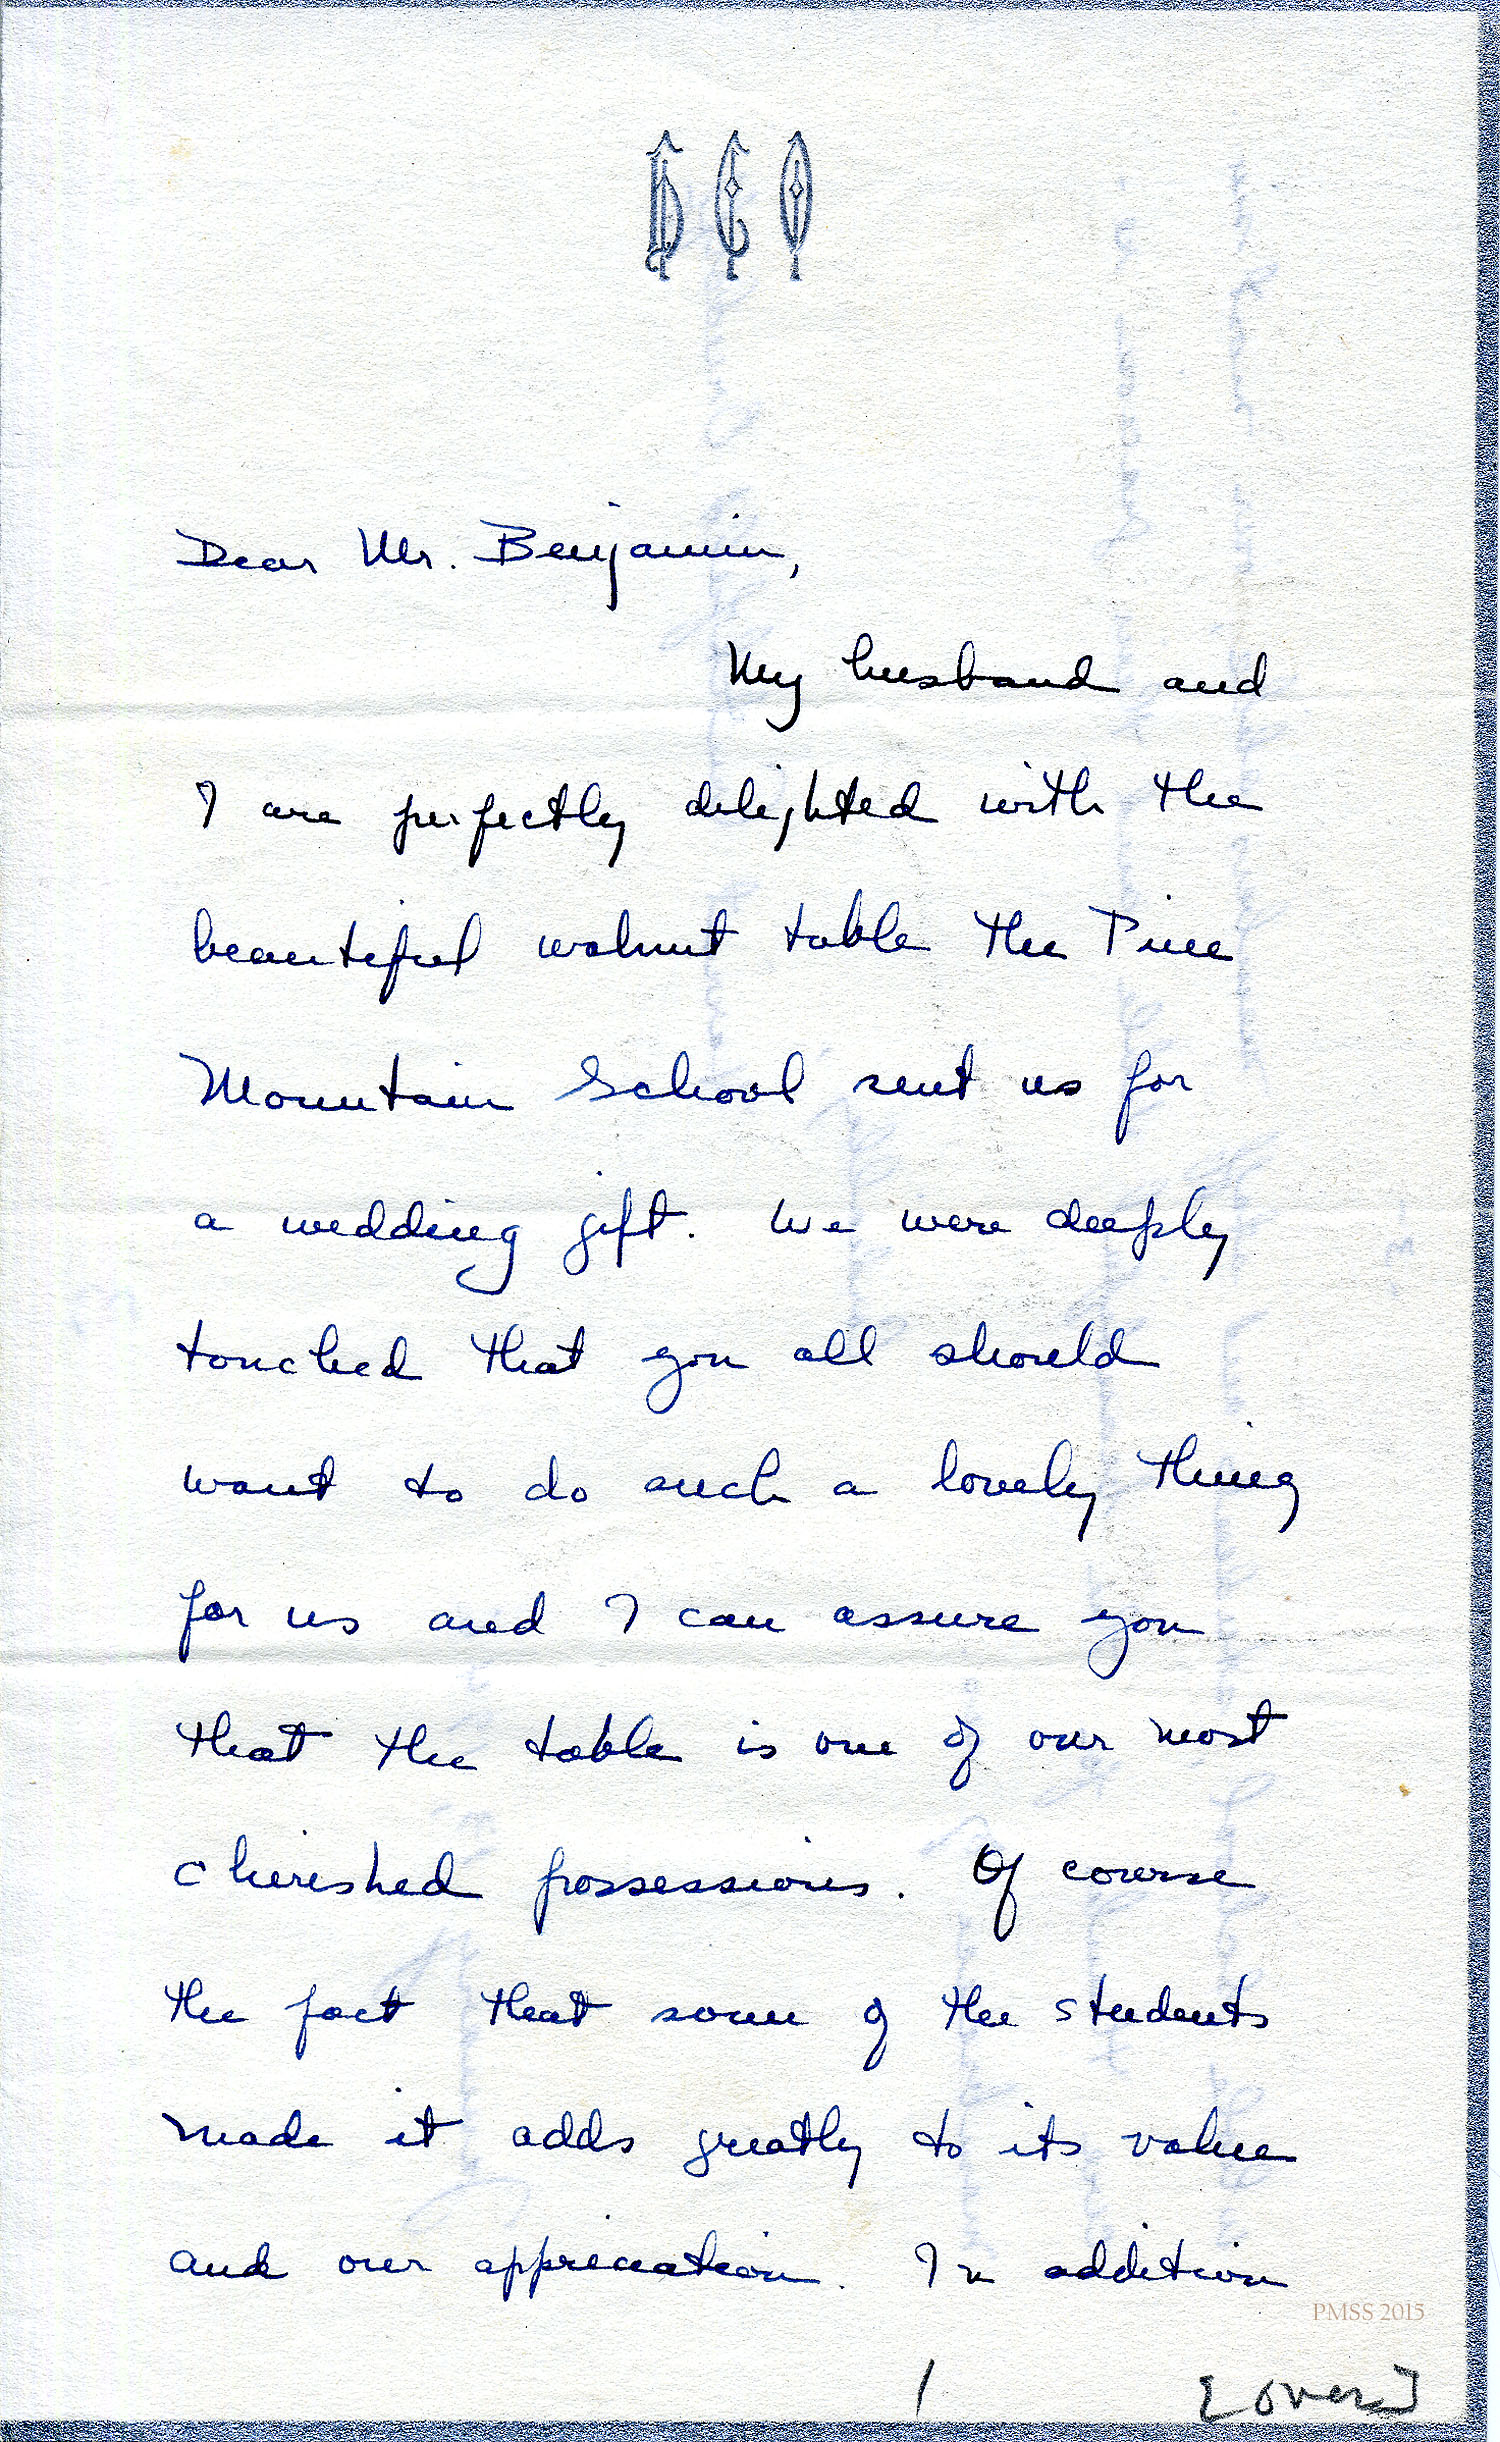 D C O
Dear Mr. Benjamin,
My husband and
I are perfectly delighted with the
beautiful walnut table the Pine
Mountain School sent us for
a wedding gift. We were deeply
touched that you all should
want to do such a lovely thing
for us and I can assure you
that the table is one of our most
cherished possessions. Of course
the fact that some of the students
made it adds greatly to its value
and our appreciation. In addition
PMSS 2015
1 [over]